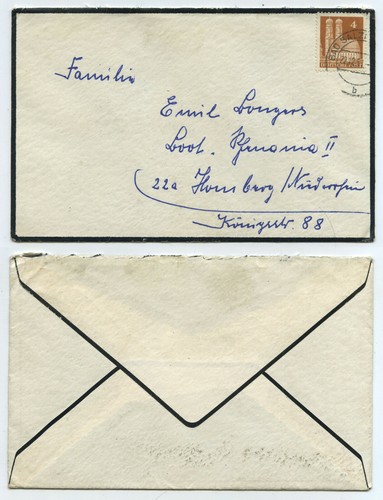 4
Familie
Emil Longers
Boot. Rhenania II
22a Homberg/Niederrhein
Königsstr. 88
b